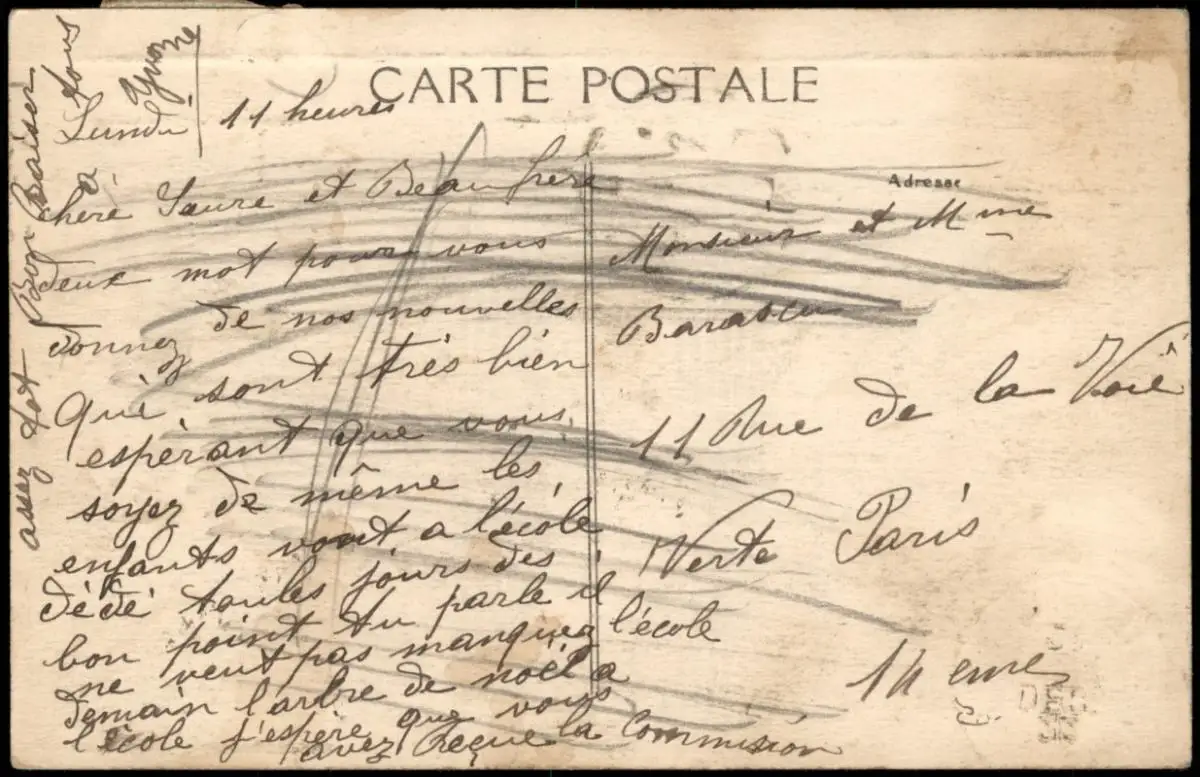 CARTE POSTALE
Lundi 11 heures
chère Sœure et Beaufrère
deux mot pour vous
donnez de nos nouvelles
que sont très bien
espèrant que vous
soyez de même les
enfants vont a l'école
dédé toules jours des
bon point tu parle il
ne veut pas manquez l'école
demain l'arbre de noël a
l'école j'espère que vous
avez reçue la Commision
assez tot Bon Baiser
a tous
Yvonne
Adresse
Monsieur et Mme
Barascu
11 Rue de la Voie
Verte Paris
14 eme